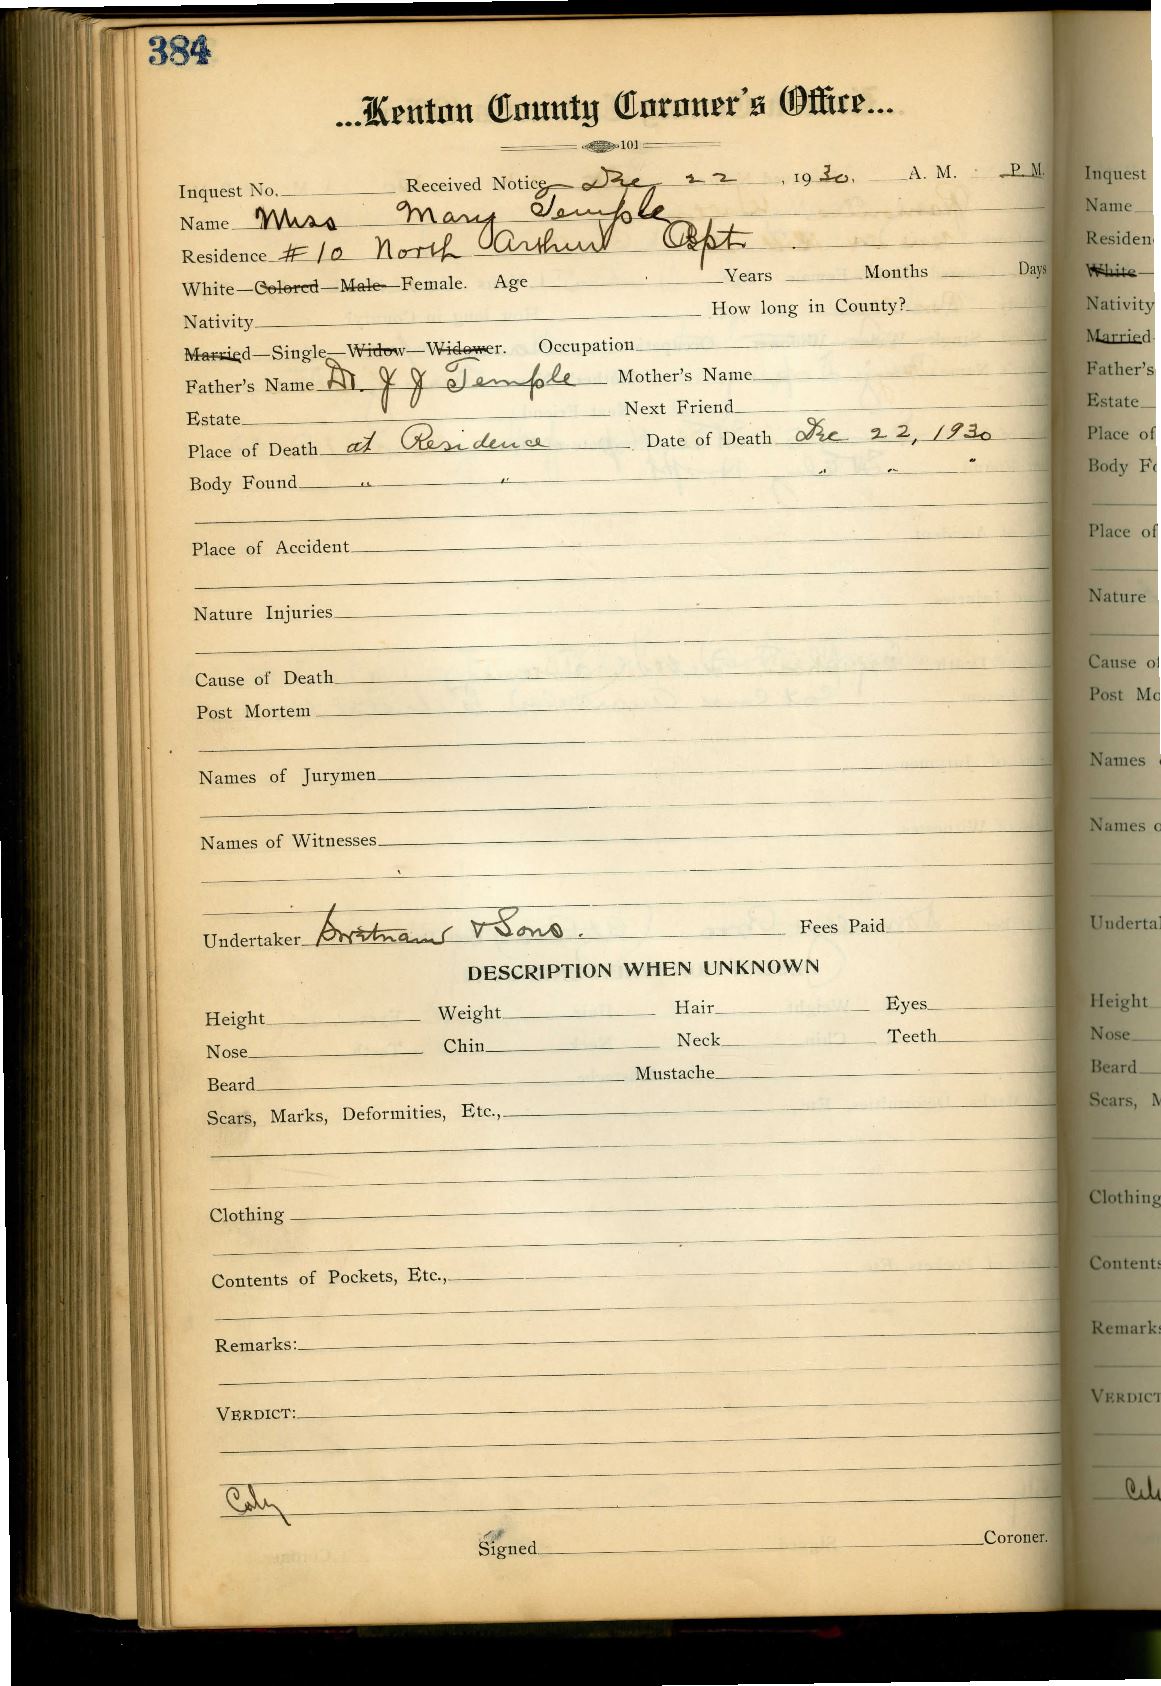 384
...Kenton County Coroner's Office...
101
Inquest No. Received Notice Dec 22, 1930. A. M. P. M.
Name Miss Mary Temple
Residence #10 North Arthur Apt
White—Colored—Male—Female. Age Years Months Days
Nativity How long in County?
Married—Single—Widow—Widower. Occupation
Father's Name Dr. J J Temple Mother's Name
Estate Next Friend
Place of Death at Residence Date of Death Dec 22, 1930
Body Found " " " " "
Place of Accident
Nature Injuries
Cause of Death
Post Mortem
Names of Jurymen
Names of Witnesses
Undertaker & Sons. Fees Paid
DESCRIPTION WHEN UNKNOWN
Height Weight Hair Eyes
Nose Chin Neck Teeth
Beard Mustache
Scars, Marks, Deformities, Etc.,
Clothing
Contents of Pockets, Etc.,
Remarks:
VERDICT:
Signed Coroner.
Inquest
Name
Residen
White—
Nativity
Married
Father's
Estate
Place of
Body Fo
Place of
Nature
Cause of
Post Mo
Names
Names o
Underta
Height
Nose
Beard
Scars, M
Clothing
Contents
Remarks
VERDICT